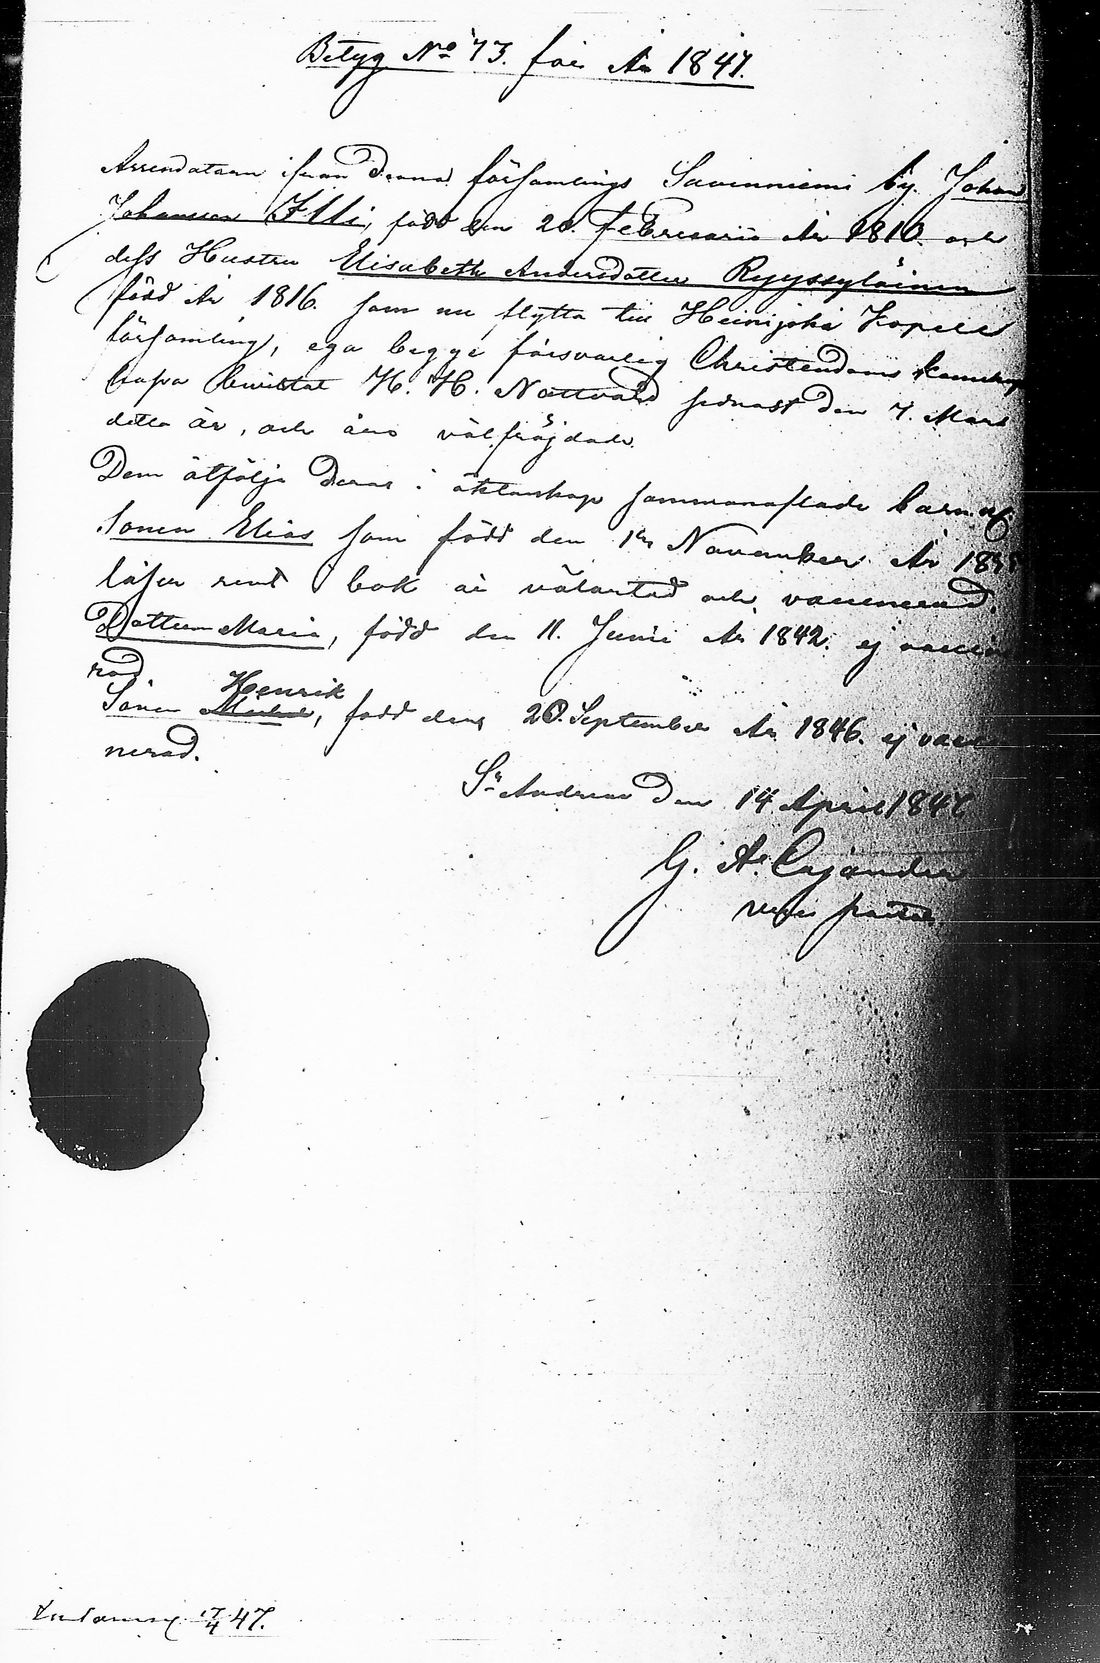 Betyg No 73. för År 1847.
Arrendatorn ifrån denna församlings Savenniemi by Johan
Johansson Illi, född den 20. Februarii År 1810. och
dess Hustru Elisabeth Andersdotter Ryyssyläinen
född År 1816. som nu flytta till Heinijoki Kapell
församling, ega begge försvarlig Christendoms kunskap
hafva bevistat H. H. Nattvard sednast den 7. Mars
detta år, och äro välfrejdade.
Dem åtfölja deras i äktenskap sammanaflade barn
Sonen Elias som född den 1 November År
läser rent i bok är välartad och vaccinerad.
Dottren Maria, född den 11. Junii År 1842. ej vaccine
rad
Henrik
Sonen, född den 20. September År 1846. ej vacci
nerad.
St Andreae den 14 April 1847
G. A. Cajander
vice pastor
17/4 47.